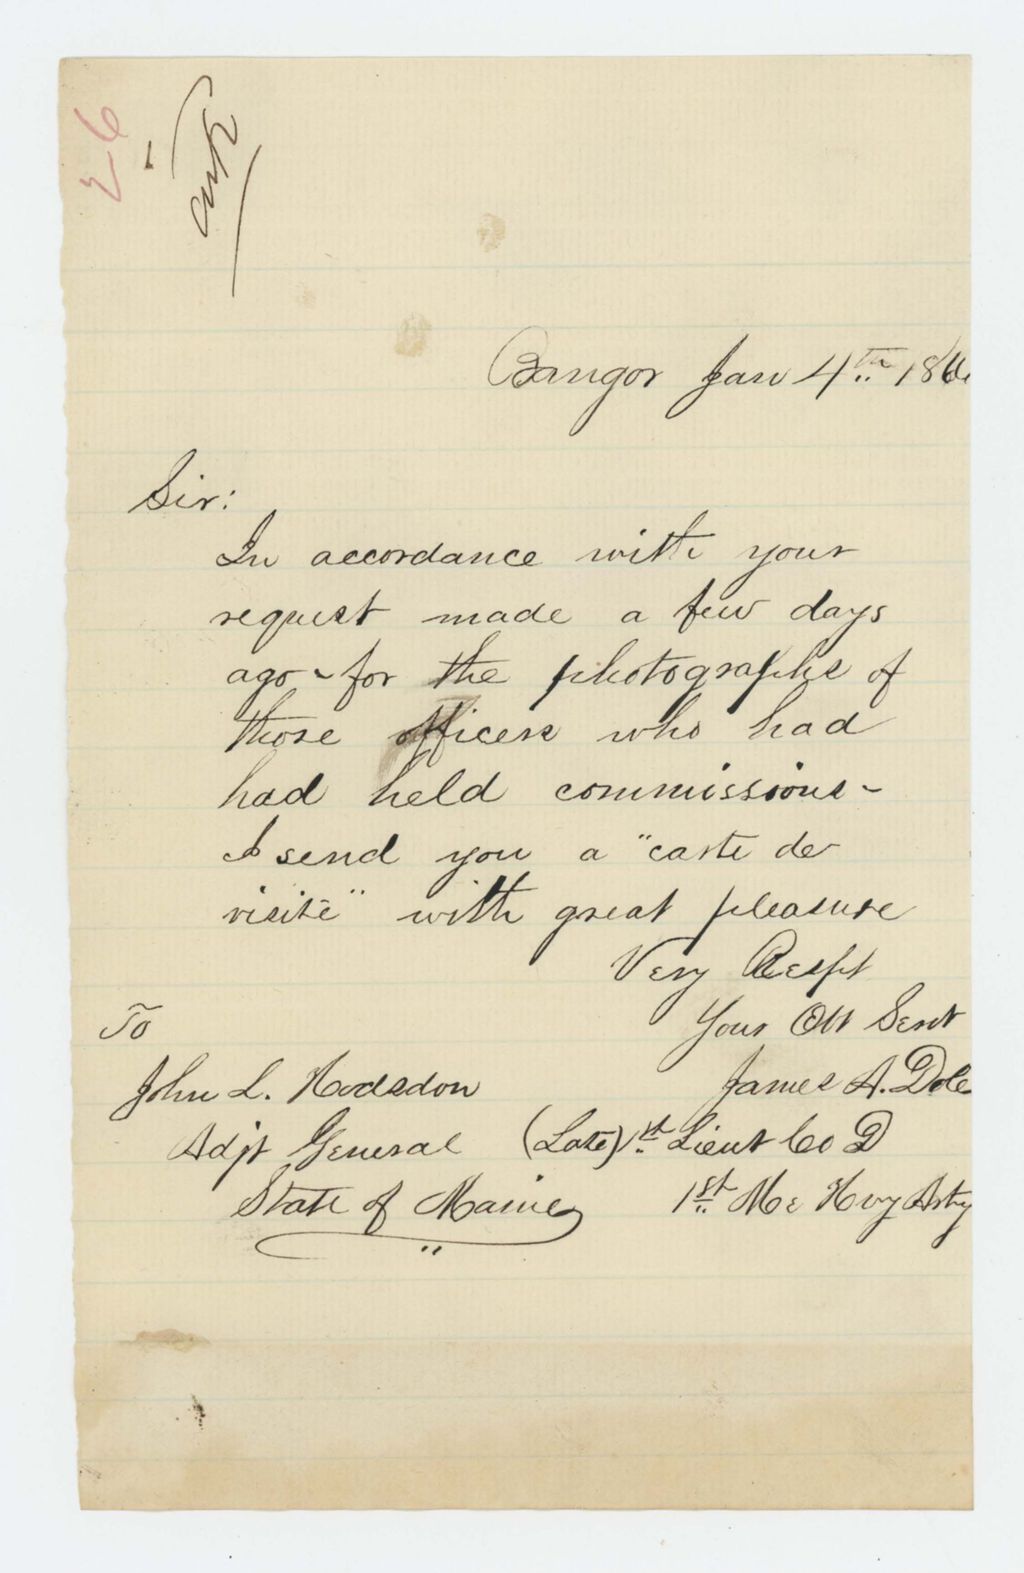 Bangor Jan 4th 186
Sir:
In accordance with your
request made a few days
ago - for the photographs of
those officers who had
had held commissions -
I send you a "carte de
visite" with great pleasure
Very Respt
Your Obt Servt
To
James A. Dole
John L. Hodsdon
(Late) 1st Lieut Co D
Adjt General
1st Me Hvy Arty
State of Maine